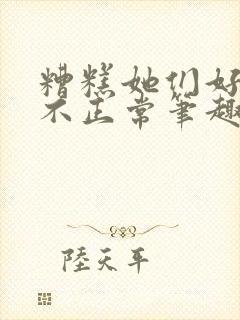 糟糕她们好
不正常笔趣
陸天平